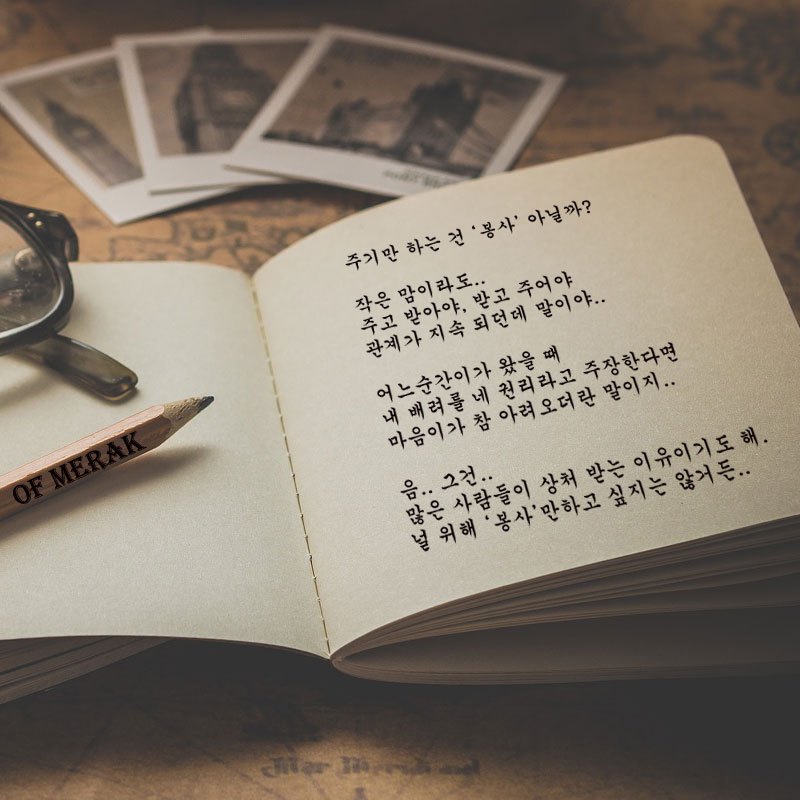 주기만 하는 건 ‘봉사’ 아닐까?
작은 맘이라도..
주고 받아야, 받고 주어야
관계가 지속 되던데 말이야..
어느순간이가 왔을 때
내 배려를 네 권리라고 주장한다면
마음이가 참 아려오더란 말이지..
음.. 그건..
많은 사람들이 상처 받는 이유이기도 해.
널 위해 ‘봉사’만하고 싶지는 않거든..
OF MERAK